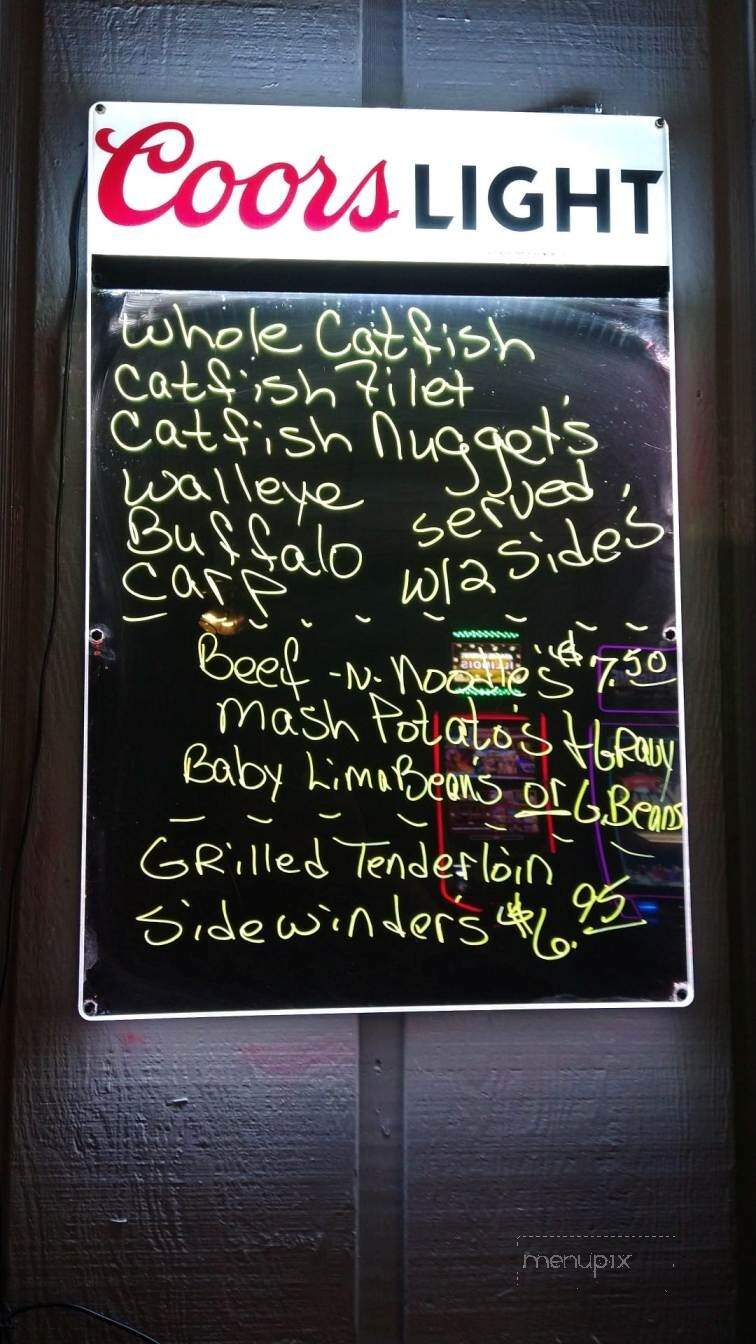 Coors LIGHT
Whole Catfish
Catfish Filet
Catfish Nugget's
Walleye served
Buffalo w/2 Side's
Carp
Beef -N- Noodle's $7.50
Mash Potato's + Gravy
Baby Lima Bean's or G.Beans
Grilled Tenderloin
Sidewinder's $6.95
ILLINOIS
menupix